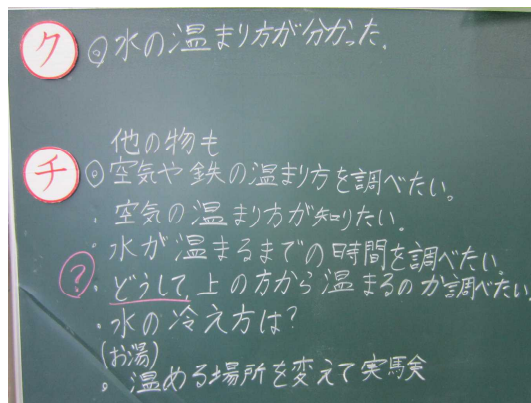 ク ◎水の温まり方が分かった。
他の物も
チ ◎空気や鉄の温まり方を調べたい。
・空気の温まり方が知りたい。
・水が温まるまでの時間を調べたい。
? ・どうして上の方から温まるのか調べたい
・水の冷え方は?
(お湯)
。温める場所を変えて実験